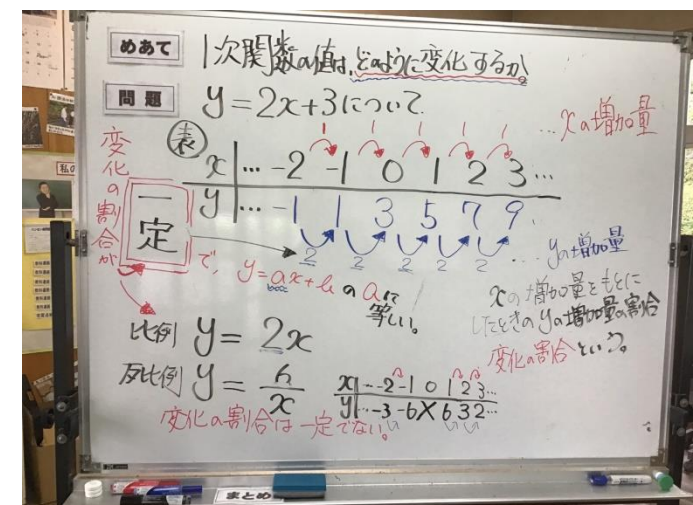 めあて
1次関数の値は、どのように変化するか。
問題
y=2x+3について
1 1 1 1 1 …xの増加量
表
x … -2 -1 0 1 2 3 …
y … -1 1 3 5 7 9
2 2 2 2 2 …yの増加量
変化の割合が
一定
で、y=ax+bのaに等しい。
xの増加量をもとに
したときのyの増加量の割合
変化の割合という。
比例 y=2x
反比例 y=6/x
x … -2 -1 0 1 2 3 …
y … -3 -6 X 6 3 2 …
変化の割合は一定でない。
まとめ